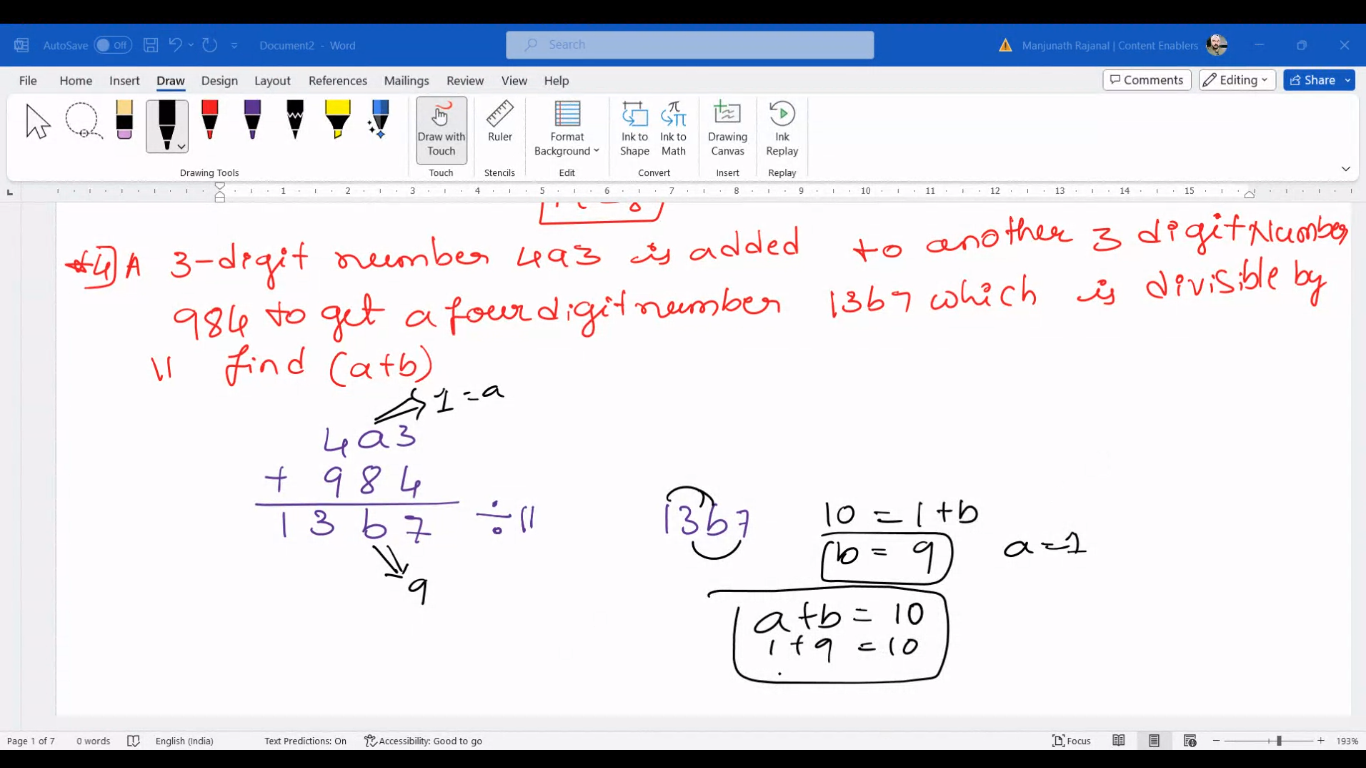 AutoSave Off Document2 - Word Search Manjunath Rajanal | Content Enablers
File Home Insert Draw Design Layout References Mailings Review View Help Comments Editing Share
Draw with Touch Ruler Format Background Ink to Shape Ink to Math Drawing Canvas Ink Replay
Drawing Tools Touch Stencils Edit Convert Insert Replay
1 2 3 4 5 6 7 8 9 10 11 12 13 14 15
4] A 3-digit number 4a3 is added to another 3 digit Number
984 to get a four digit number 13b7 which is divisible by
11 find (a+b)
1 = a
4a3
+ 984
13b7 ÷ 11
9
13b7
10 = 1+b
b = 9 a = 1
a+b = 10
1+9 = 10
Page 1 of 7 0 words English (India) Text Predictions: On Accessibility: Good to go Focus 193%